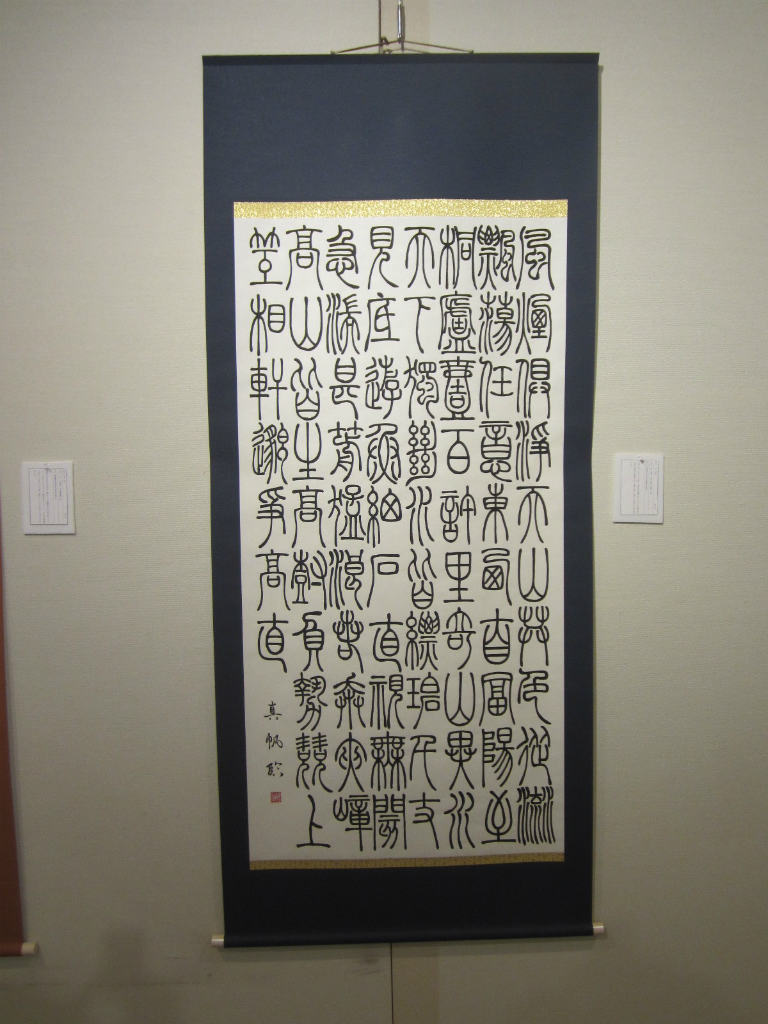 風煙俱淨天山共色從流
飄蕩任意東西自富陽至
桐廬壹百許里奇山異水
天下獨絕水皆縹碧千丈
見底遊魚細石直視無閡
急湍甚箭猛浪若奔夾嶂
高山皆生高樹負勢競上
互相軒邈爭高直
真帆臨